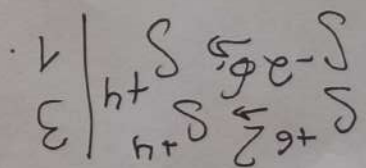 S⁺⁶ 2 → S⁺⁴ | 3
S⁻² 6e → S⁺⁴ | 1